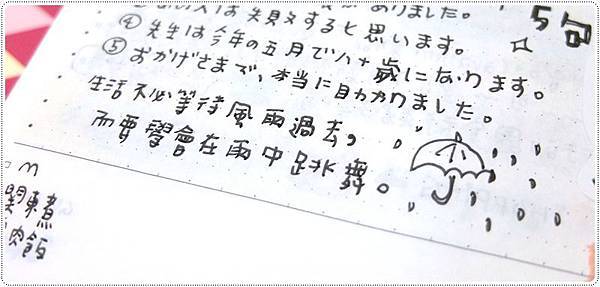 ありました。
5句
は失敗すると思います。
④ 先生は今年の五月で八十歳になります。
⑤ おかげさまで、本当に助かりました。
生活不必等待風雨過去,
而要學會在雨中跳舞。
m
関東煮
肉飯